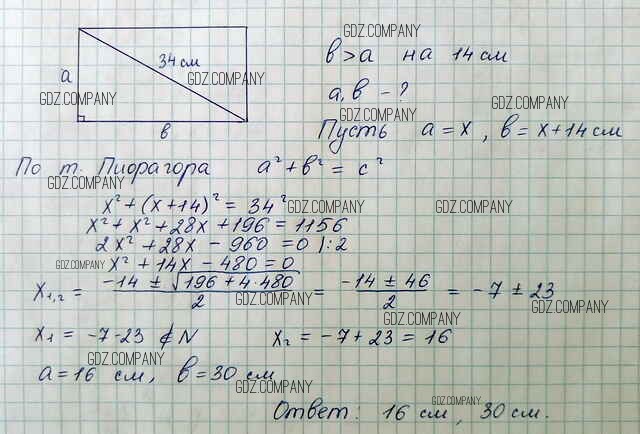 GDZ.COMPANY
34 см
b > a на 14 см
a
GDZ.COMPANY
GDZ.COMPANY
a, b - ?
GDZ.COMPANY
GDZ.COMPANY
b
Пусть a = x, b = x + 14 см
По т. Пиорагора a² + b² = c²
GDZ.COMPANY
x² + (x + 14)² = 34²
GDZ.COMPANY
GDZ.COMPANY
x² + x² + 28x + 196 = 1156
2x² + 28x - 960 = 0 |:2
GDZ.COMPANY
x² + 14x - 480 = 0
x₁,₂ = (-14 ± √(196 + 4·480))/2 = (-14 ± 46)/2 = -7 ± 23
GDZ.COMPANY
GDZ.COMPANY
GDZ.COMPANY
x₁ = -7-23 ∉ N x₂ = -7 + 23 = 16
GDZ.COMPANY
a = 16 см, b = 30 см
GDZ.COMPANY
GDZ.COMPANY
Ответ: 16 см, 30 см.